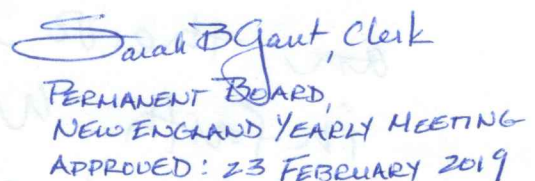 Sarah B Gant, Clerk
PERMANENT BOARD,
NEW ENGLAND YEARLY MEETING
APPROVED: 23 FEBRUARY 2019